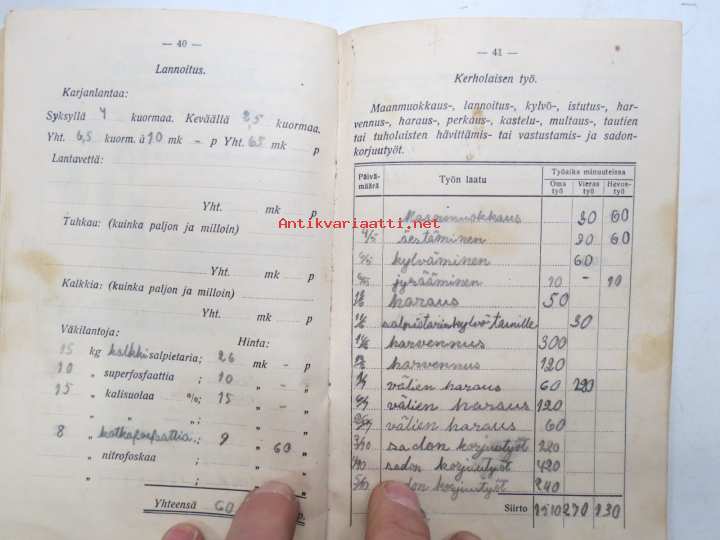 — 40 —
Lannoitus.
Karjanlantaa:
Syksyllä 4 kuormaa. Keväällä 2,5 kuormaa.
Yht. 6,5 kuorm. à 10 mk – p Yht. 65 mk p
Lantavettä:
Yht. mk p
Tuhkaa: (kuinka paljon ja milloin)
Yht. mk p
Kalkkia: (kuinka paljon ja milloin)
Yht. mk p
Väkilantoja: Hinta:
15 kg kalkkisalpietaria; 26 mk – p
10 „ superfosfaattia ; 10 „ – „
15 „ kalisuolaa %; 15 „ – „
„ „ ; „ „
8 „ kotkafosfaattia ; 9 „ 60 „
„ nitrofoskaa ; „ „
„ ; „ „
Yhteensä 60 p.
— 41 —
Kerholaisen työ.
Maanmuokkaus-, lannoitus-, kylvö-, istutus-, har-
vennus-, haraus-, perkaus-, kastelu-, multaus-, tautien
tai tuholaisten hävittämis- tai vastustamis- ja sadon-
korjuutyöt.
Päivä-määrä Työn laatu Työaika minuuteissa
Oma työ Vieras työ Hevos-työ
Maanmuokkaus 30 60
äestäminen 60
kylväminen 60
jyrääminen 10 – 10
haraus 50
salpietarin kylvö taimille 30
harvennus 300
harvennus 120
välien haraus 60
välien haraus 120
välien haraus 60
3/10 sadon korjuutyöt
sadon korjuutyöt 420
sadon korjuutyöt 240
Siirto 270 130
Antikvariaatti.net